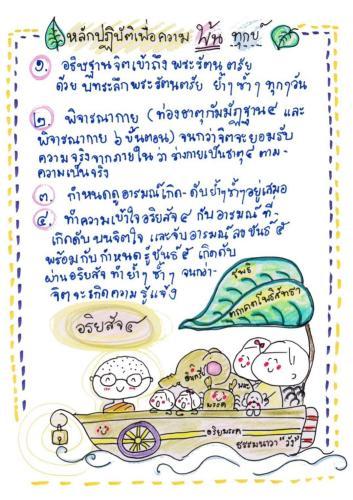 หลักปฏิบัติเพื่อความ พ้น ทุกข์
๑. อธิษฐานจิตเข้าถึง พระรัตนตรัย
ด้วย บทระลึกพระรัตนตรัย ย้ำๆ ซ้ำๆ ทุกๆวัน
๒. พิจารณากาย (ท่องธาตุกัมมัฏฐาน๔ และ
พิจารณากาย ๖ ขั้นตอน) จนกว่าจิตจะยอมรับ
ความจริงจากภายใน ว่า ร่างกายเป็นธาตุ๔ ตาม
ความเป็นจริง
๓. กำหนดดูอารมณ์เกิด-ดับย้ำๆซ้ำๆอยู่เสมอ
๔. ทำความเข้าใจอริยสัจ๔ กับ อารมณ์ ที่
เกิดดับบนจิตใจ และจับอารมณ์ลงขันธ์๕
พร้อมกับกำหนดรู้ขันธ์๕ เกิดดับ
ผ่านอริยสัจ ทำย้ำๆ ซ้ำๆ จนกว่า
จิตจะเกิดความรู้แจ้ง
อริยสัจ๔
ขันติ
ตถาคตโพธิสัทธา
มรรค
อริยมรรค
ธรรมนาวา "วัง"